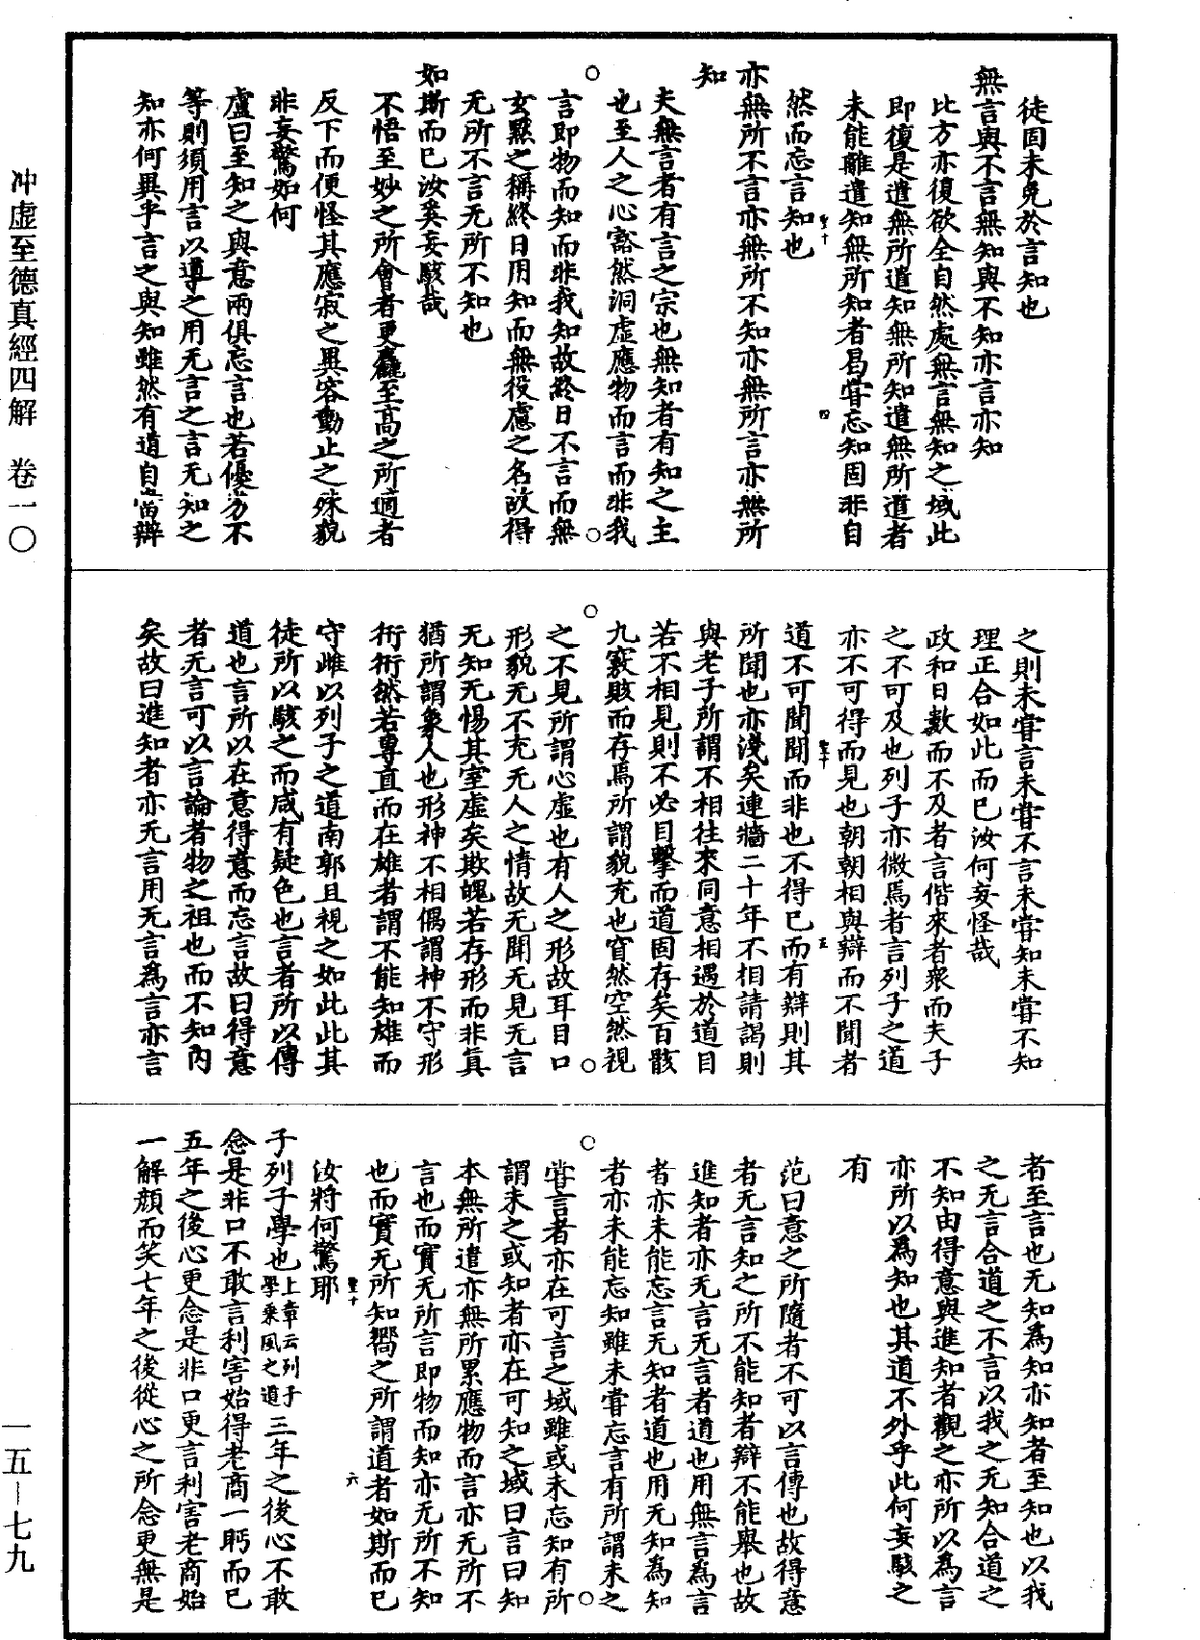 徒固未免於言知也
無言與不言無知與不知亦言亦知
比方亦復欲全自然處無言無知之域此
即復是遣無所遣知無所知遣無所遣者
未能離遣知無所知者曷嘗忘知固非自
然而忘言知也
亦無所不言亦無所不知亦無所言亦無所
知
夫無言者有言之宗也無知者有知之主
也至人之心豁然洞虛應物而言而非我
言即物而知而非我知故終日不言而無
玄默之稱終日用知而無役慮之名故得
无所不言无所不知也
如斯而已汝奚妄駭哉
不悟至妙之所會者更麤至高之所適者
反下而便怪其應寂之異容動止之殊貌
非妄驚如何
盧曰至知之與意兩俱忘言也若優劣不
等則須用言以導之用无言之言无知之
知亦何異乎言之與知雖然有道自當辯
之則未嘗言未嘗不言未嘗知未嘗不知
理正合如此而已汝何妄怪哉
政和曰數而不及者言偕來者衆而夫子
之不可及也列子亦微焉者言列子之道
亦不可得而見也朝朝相與辯而不聞者
道不可聞聞而非也不得已而有辯則其
所聞也亦淺矣連牆二十年不相請謁則
與老子所謂不相往來同意相遇於道目
若不相見則不必目擊而道固存矣百骸
九竅賅而存焉所謂貌充也窅然空然視
之不見所謂心虛也有人之形故耳目口
形貌无不充无人之情故无聞无見无言
无知无惕其室虛矣欺魄若存形而非真
猶所謂象人也形神不相偶謂神不守形
衎衎然若專直而在雄者謂不能知雄而
守雌以列子之道南郭且視之如此此其
徒所以駭之而咸有疑色也言者所以傳
道也言所以在意得意而忘言故曰得意
者无言可以言論者物之祖也而不知內
矣故曰進知者亦无言用无言為言亦言
者至言也无知為知亦知者至知也以我
之无言合道之不言以我之无知合道之
不知由得意與進知者觀之亦所以為言
亦所以為知也其道不外乎此何妄駭之
有
范曰意之所隨者不可以言傳也故得意
者无言知之所不能知者辯不能舉也故
進知者亦无言无言者道也用無言為言
者亦未能忘言无知者道也用无知為知
者亦未能忘知雖未嘗忘言有所謂未之
嘗言者亦在可言之域雖或未忘知有所
謂未之或知者亦在可知之域曰言曰知
本無所遣亦無所累應物而言亦无所不
言也而實无所言即物而知亦无所不知
也而實无所知嚮之所謂道者如斯而已
汝將何驚耶
子列子學也上章云列子學乘風之道三年之後心不敢
念是非口不敢言利害始得老商一眄而已
五年之後心更念是非口更言利害老商始
一解顏而笑七年之後從心之所念更無是
聖十 四
聖十 五
聖十 六
冲虛至德真經四解 卷一〇
一五—七九